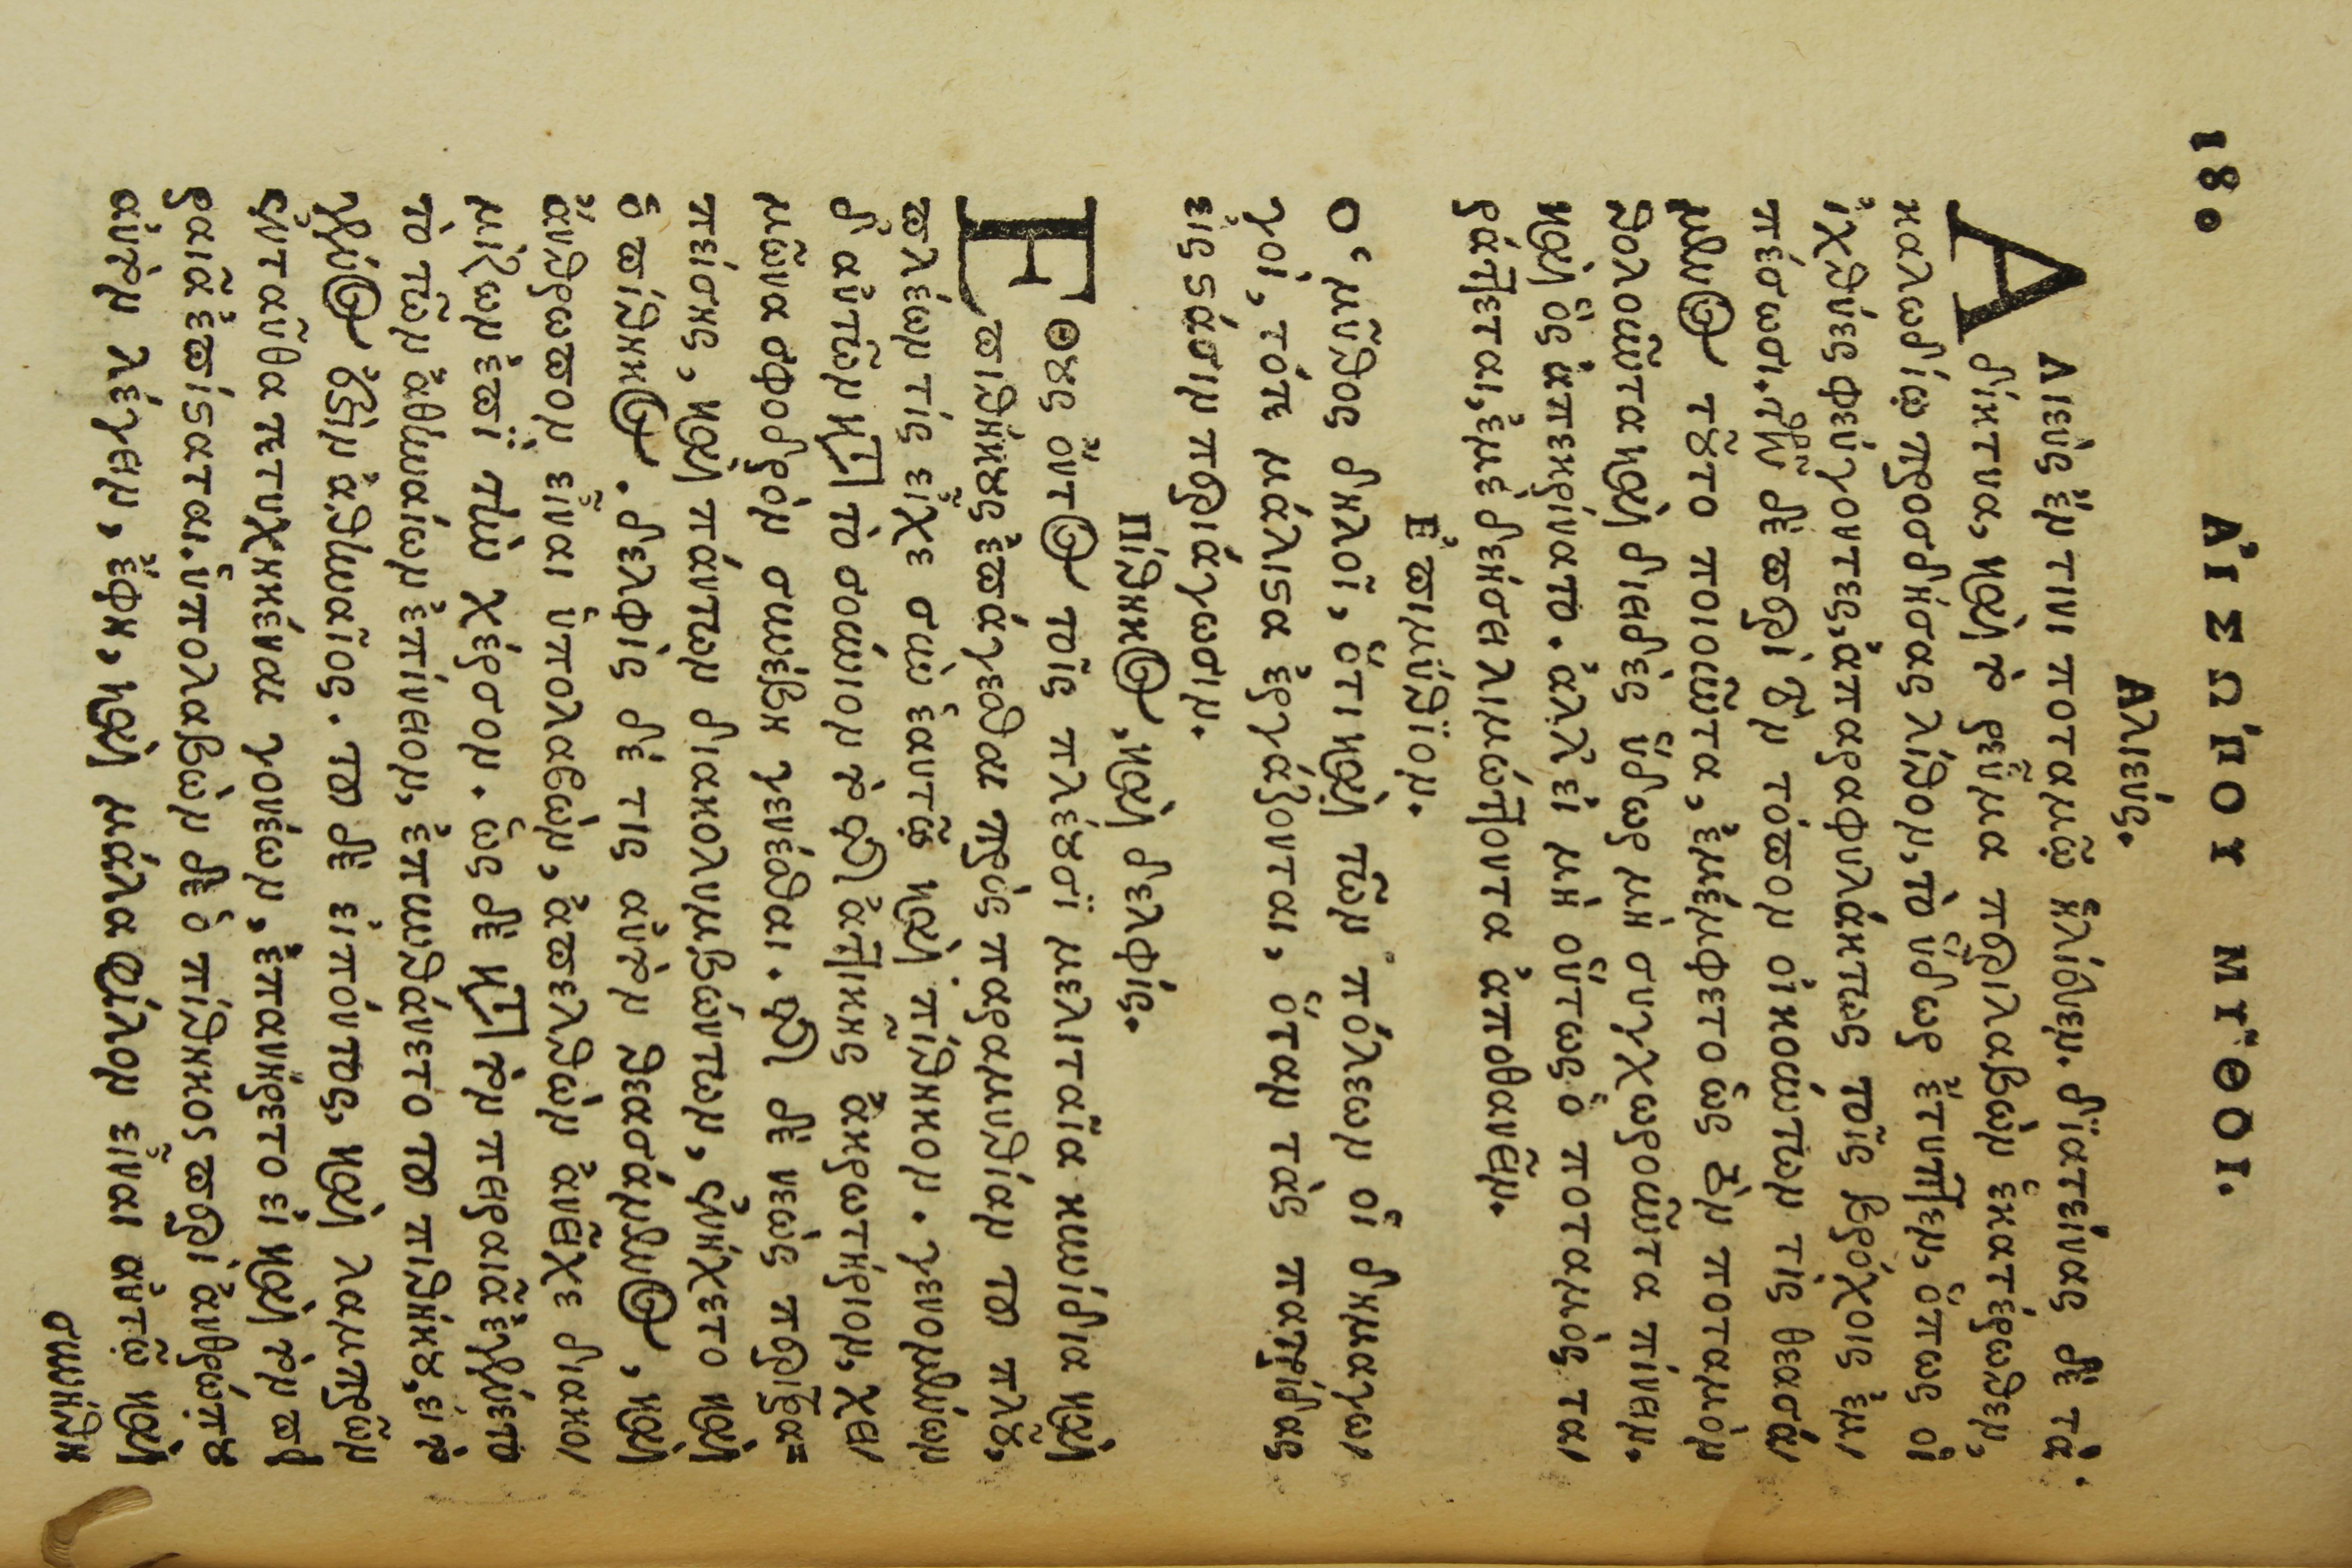 180 ΑΙΣΩΠΟΥ ΜΥΘΟΙ.
Ἁλιεύς.
Αλιεὺς ἔν τινι ποταμῷ ἡλίευεν. διατείνας δὲ τὰ
δίκτυα, καὶ τὸ ῥεῦμα περιλαβὼν ἑκατέρωθεν,
καλωδίῳ προσδήσας λίθον, τὸ ὕδωρ ἔτυπτεν, ὅπως οἱ
ἰχθύες φεύγοντες, ἀπαραφυλάκτως τοῖς βρόχοις ἐμ
πέσωσι. τῶν δὲ περὶ τὸν τόπον οἰκούντων τὶς θεασά
μενος τοῦτο ποιοῦντα, ἐμέμφετο ὡς τὸν ποταμὸν
θολοῦντα καὶ διειδὲς ὕδωρ μὴ συγχωροῦντα πίνειν.
καὶ ὃς ἀπεκρίνατο. ἀλλ' εἰ μὴ οὕτως ὁ ποταμὸς τα
ράττεται, ἐμὲ δεήσει λιμώττοντα ἀποθανεῖν.
Ἐπιμύθιον.
Ὁ μῦθος δηλοῖ, ὅτι καὶ τῶν πόλεων οἱ δημαγω
γοὶ, τότε μάλιστα ἐργάζονται, ὅταν τὰς πατρίδας
εἰς στάσιν περιάγωσιν.
Πίθηκος, καὶ δελφίς.
Εθους ὄντος τοῖς πλέουσι μελιταῖα κυνίδια καὶ
πιθήκους ἐπάγεσθαι πρὸς παραμυθίαν τοῦ πλοῦ,
πλέων τίς εἶχε σὺν ἑαυτῷ καὶ πίθηκον. γενομένων
δ' αὐτῶν κατὰ τὸ σούνιον τὸ τῆς ἀττικῆς ἀκρωτήριον, χει
μῶνα σφοδρὸν συνέβη γενέσθαι. τῆς δὲ νεὼς περιτρα=
πείσης, καὶ πάντων διακολυμβώντων, ἐνήχετο καὶ
ὁ πίθηκος. δελφὶς δέ τις αὐτὸν θεασάμενος, καὶ
ἄνθρωπον εἶναι ὑπολαβὼν, ἀπελθὼν ἀνεῖχε διακο
μίζων ἐπὶ τὴν χέρσον. ὡς δὲ κατὰ τὸν πειραιᾶ ἐγένετο
τὸ τῶν ἀθηναίων ἐπίνειον, ἐπυνθάνετο τοῦ πιθήκου, εἰ τὸ
γένος ἐστὶν ἀθηναῖος. τοῦ δὲ εἰπόντος, καὶ λαμπρῶν
ἐνταῦθα τετυχηκέναι γονέων, ἐπανήρετο εἰ καὶ τὸν πει
ραιᾶ ἐπίσταται. ὑπολαβὼν δὲ ὁ πίθηκος περὶ ἀνθρώπου
αὐτὸν λέγειν, ἔφη, καὶ μάλα φίλον εἶναι αὐτῷ καὶ
συνήθη